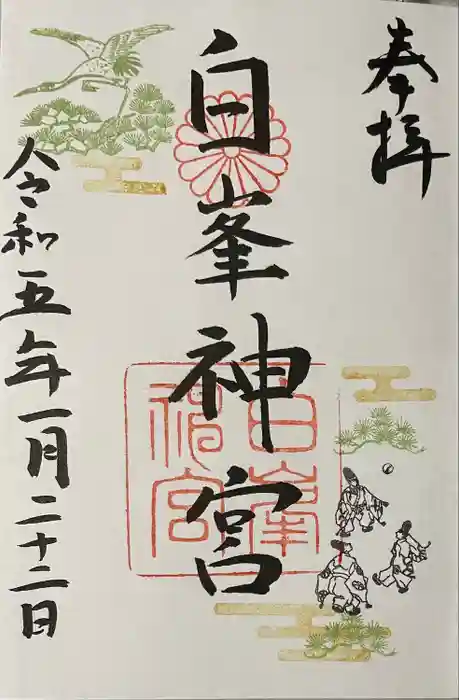 奉拝
白峯神宮
白峯
神宮
令和五年一月二十二日